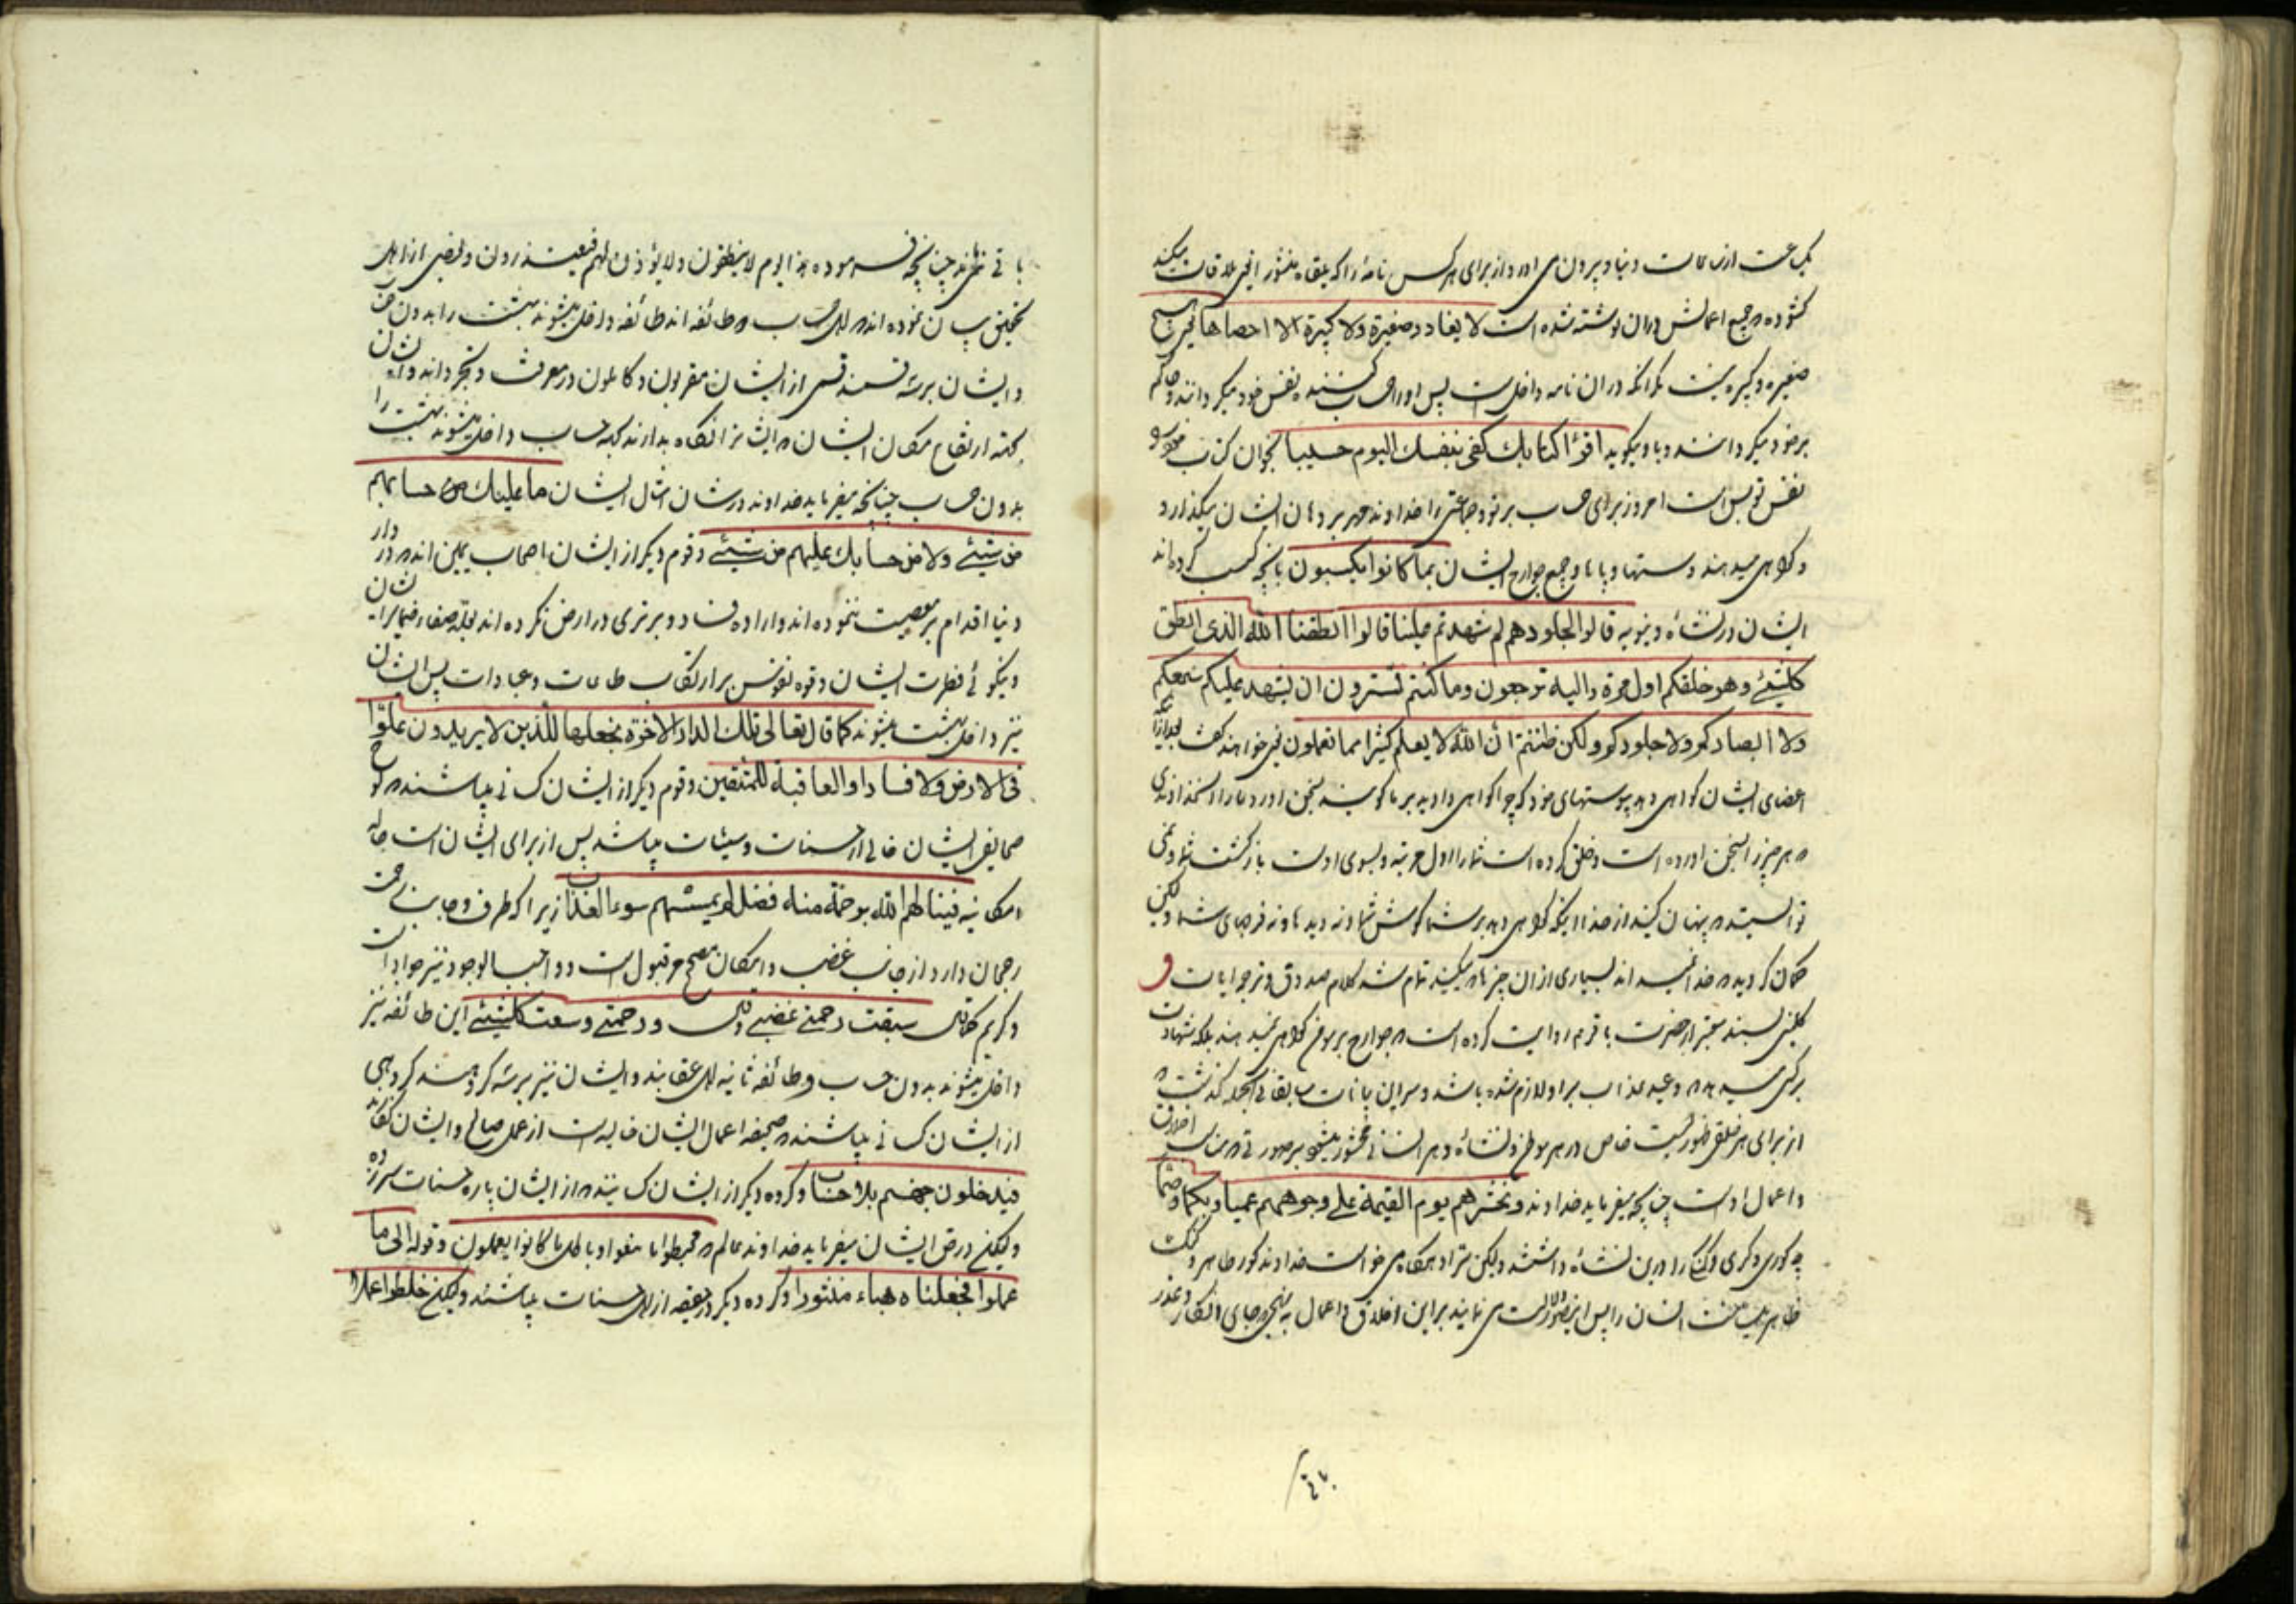 یک ساعت ازساعات دنیا و بیرون می اورد از برای هر کس نامۀ را که یلقاه منشورا یعنی ملاقات میکند
کشوده و جمیع اعمالش دران نوشته شده است لا یغادر صغیرة ولا کبیرة الا احصاها یعنی هیچ
صغیره و کبیره نیست مکر انکه در ان نامه داخل است پس او را حساب کننده نفس خود میکردانند و حاکم
بر خود میکردانند و باو میکوید اقرأ کتابک کفی بنفسک الیوم حسیبا بخوان کتاب خود
نفس تو بس است امروز برای حساب بر تو و جماعتی را خداوند مهر بر دهان ایشان میکذارد
و کواهی میدهند دستها و پاها و جمیع جوارح ایشان بما کانوا یکسبون بانچه کسب کرده اند
ایشان در نشاه دنیویه قالوا لجلودهم لم شهدتم علینا قالوا انطقنا الله الذی انطق
کلشیئ و هو خلقکم اول مرة والیه ترجعون وما کنتم تستترون ان یشهد علیکم سمعکم
ولا ابصارکم ولا جلودکم ولکن ظننتم ان الله لا یعلم کثیرا مما تعملون یعنی خواهند کفت بعد از انکه
اعضای ایشان کواهی دهد بپوستهای خود که چرا کواهی دادید بر ما کویند بسخن اورد ما را خداوندی
که هر چیز را بسخن اورده است و خلق کرده است شما را اول مرتبه و بسوی اوست بازکشت شما و نمی
توانستید که پنهان کنید از خدا اینکه کواهی دهد بر شما کوش شما و نه دیدها و نه فرجهای شما ولکن
کمان کردید که خدا نمیداند بسیاری از ان چیزها که میکنید تمام شد کلام صدوق و ترجمه ایات و
کلینی بسند معتبر از حضرت باقر ع روایت کرده است که جوارح بر مومن کواهی نمیدهند بلکه شهادت
بر کسی میدهد که وعید عذاب بر او لازم شده باشد و سر این بیانات سابقا فی الجمله کذشت که
از برای هر خلقی صورتیست خاص در هر موطن و نشاۀ و هر انسانی محشور میشود بر صورتی که مناسب اخلاق
و اعمال اوست چنانچه میفرماید خداوند و نحشرهم یوم القیمة علی وجوههم عمیا و بکما و صما
چه کوری و کری و کنکی را درین نشاۀ داشتند ولیکن
باقی نمیماند چنانچه فرموده هذا الیوم لا ینطقون ولا یؤذن لهم فیعتذرون و بعضی از اهل
تحقیق بیان نموده اند که اهل حساب دو طائفه اند طائفه داخل میشوند بهشت را بدون حساب
و ایشان بر سه قسمند قسمی از ایشان مقربون و کاملون در معرفت و تجرد اند و ایشان
بجهة ارتفاع مکان ایشان و
بدون حساب چنانچه میفرماید خداوند در شان امثال ایشان ما علیک من حسابهم
من شیئ ولا من حسابک علیهم من شیئ و قوم دیکر از ایشان اصحاب یمین اند که در دار
دنیا اقدام بر معصیت ننموده اند و اراده فساد و برتری در ارض نکرده اند
و نیکوئی فطرت ایشان و قوه نفوس بر ارتکاب طاعات و عبادات پس ایشان
نیز داخل بهشت میشوند کما قال تعالی تلک الدار الاخرة نجعلها للذین لا یریدون علوا
فی الارض ولا فسادا والعاقبة للمتقین و قوم دیکر از ایشان کسانی میباشند که
صحایف ایشان خالی از حسنات و سیئات میباشد پس از برای ایشان است حاله
امکانیه فینالهم الله برحمة منه فضل لم یمسسهم سوء العذاب زیرا که طرف و جانب رحمت
رجحان دارد از جانب غضب و امکان مصحح مرقبول است و واجب الوجود نیز جواد است
و کریم کما قال سبقت رحمتی غضبی و قال و رحمتی وسعت کلشیئ این طائفه نیز
داخل میشوند بدون حساب و طائفه ثانیه اهل عقابند و ایشان نیز بر سه کروهند کروهی
از ایشان کسانی میباشند که صحیفه اعمال ایشان خالیه است از عمل صالح و ایشان کفارند
فیدخلون جهنم بلا حساب و کروه دیکر از ایشان کسانی اند که از ایشان پاره حسنات سر زده
ولیکن در حق ایشان میفرماید خداوند عالم که حبط ما صنعوا و باطل ما کانوا یعملون و قوله الی ما
عملوا فجعلناه هباء منثورا و کروه دیکر